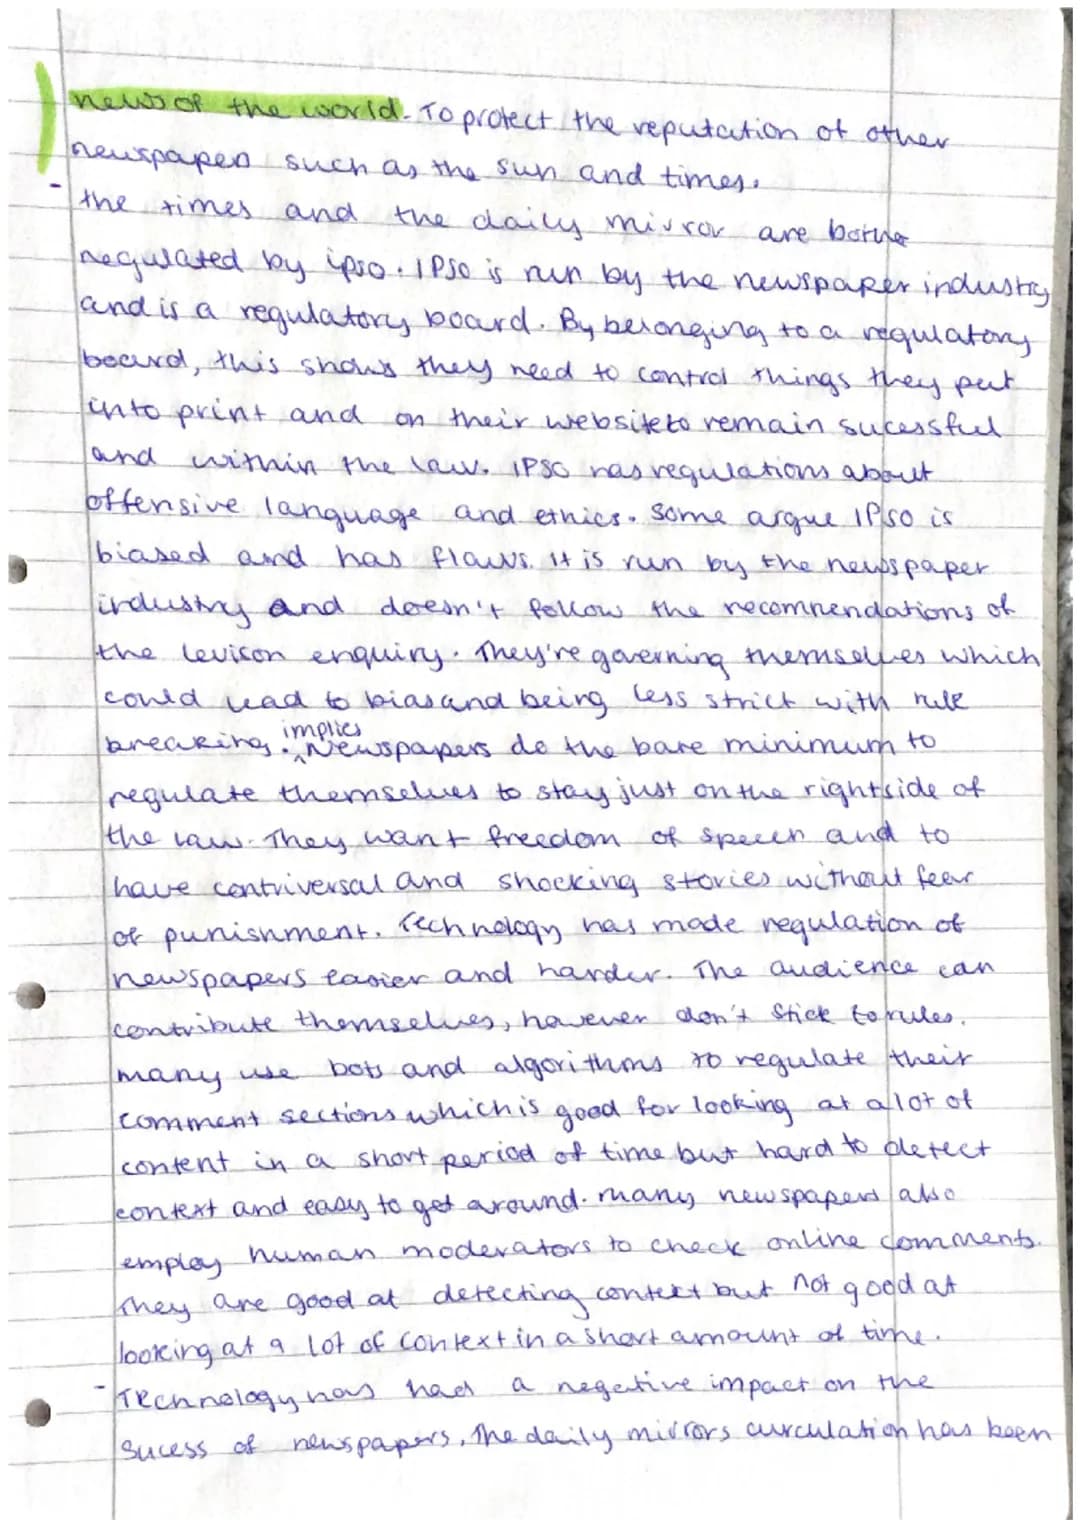 news of the world. To protect the reputation of other
newspapers such as the sun and times.
- the times and the daily mirror are both
regulated by ipso. IPSO is run by the newspaper industry
and is a regulatory board. By belonging to a regulatory
board, this shows they need to control things they put
into print and on their website to remain sucessful
and within the law. IPSO has regulations about
offensive language and ethics. Some argue IPSO is
biased and has flaws. it is run by the newspaper
industry and doesn't follow the recomnendations of
the levison enquiry. They're governing themselves which
could lead to bias and being less strict with rule
breaking. implies Newspapers do the bare minimum to
regulate themselves to stay just on the right side of
the law. They want freedom of speech and to
have contriversal and shocking stories without fear
of punishment. Technology has made regulation of
newspapers easier and harder. The audience can
contribute themselves, however don't stick to rules.
many use bots and algorithms to regulate their
comment sections which is good for looking at a lot of
content in a short period of time but hard to detect
context and easy to get around. many newspapers also
employ human moderators to check online comments.
They are good at detecting context but not good at
looking at a lot of context in a short amount of time.
- Technology has had a negative impact on the
sucess of newspapers. The daily mirrors curculation has been